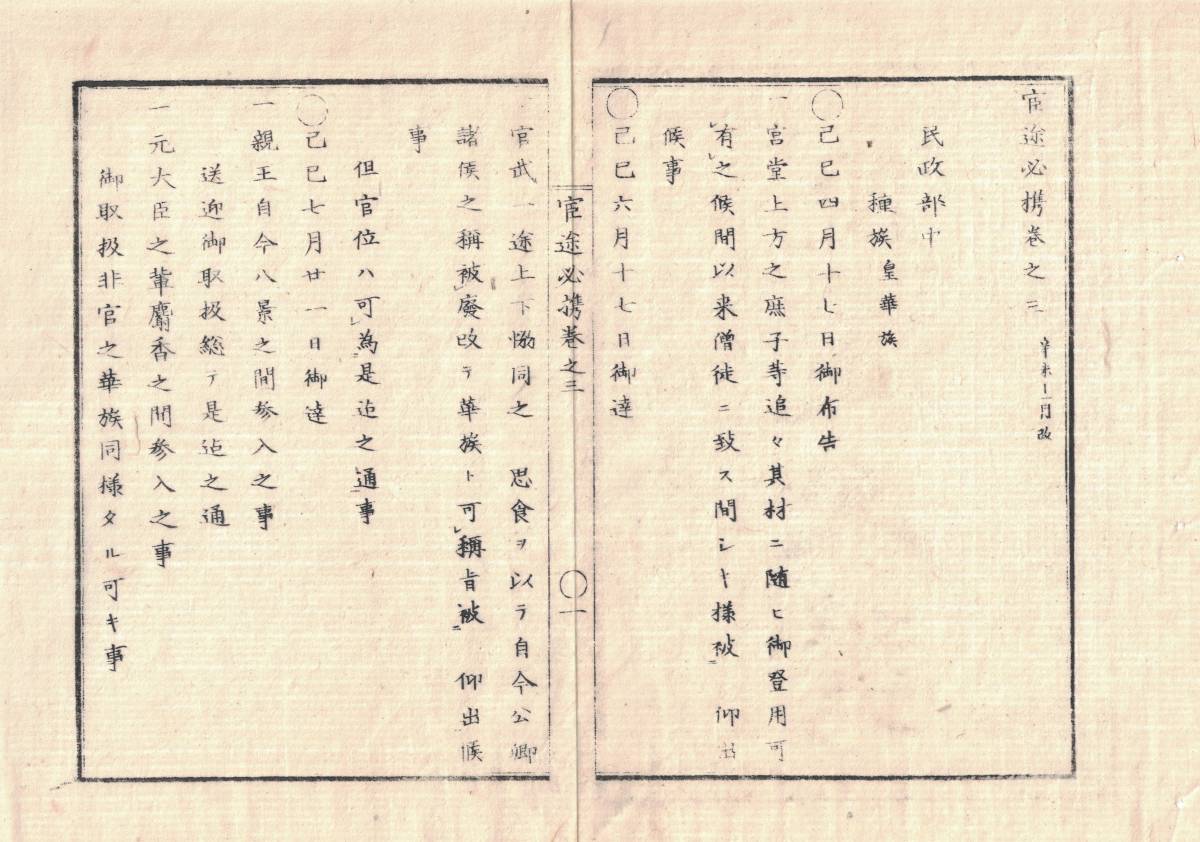 宦途必携巻之三 辛未十一月改
民政部中
種族皇華族
○己巳四月十七日御布告
一宮堂上方之庶子等追々其材ニ随ヒ御登用可
有之候間以来僧徒ニ致ス間シキ様被 仰出
候事
○己巳六月十七日御達
宦途必携巻之三 ○一
官武一途上下恊同之 思食ヲ以テ自今公卿
諸侯之稱被廢改テ華族ト可稱旨被 仰出候
事
但官位ハ可為是迄之通事
○己巳七月廿一日御達
一親王自今八景之間参入之事
送迎御取扱総テ是迄之通
一元大臣之輩麝香之間参入之事
御取扱非官之華族同様タル可キ事